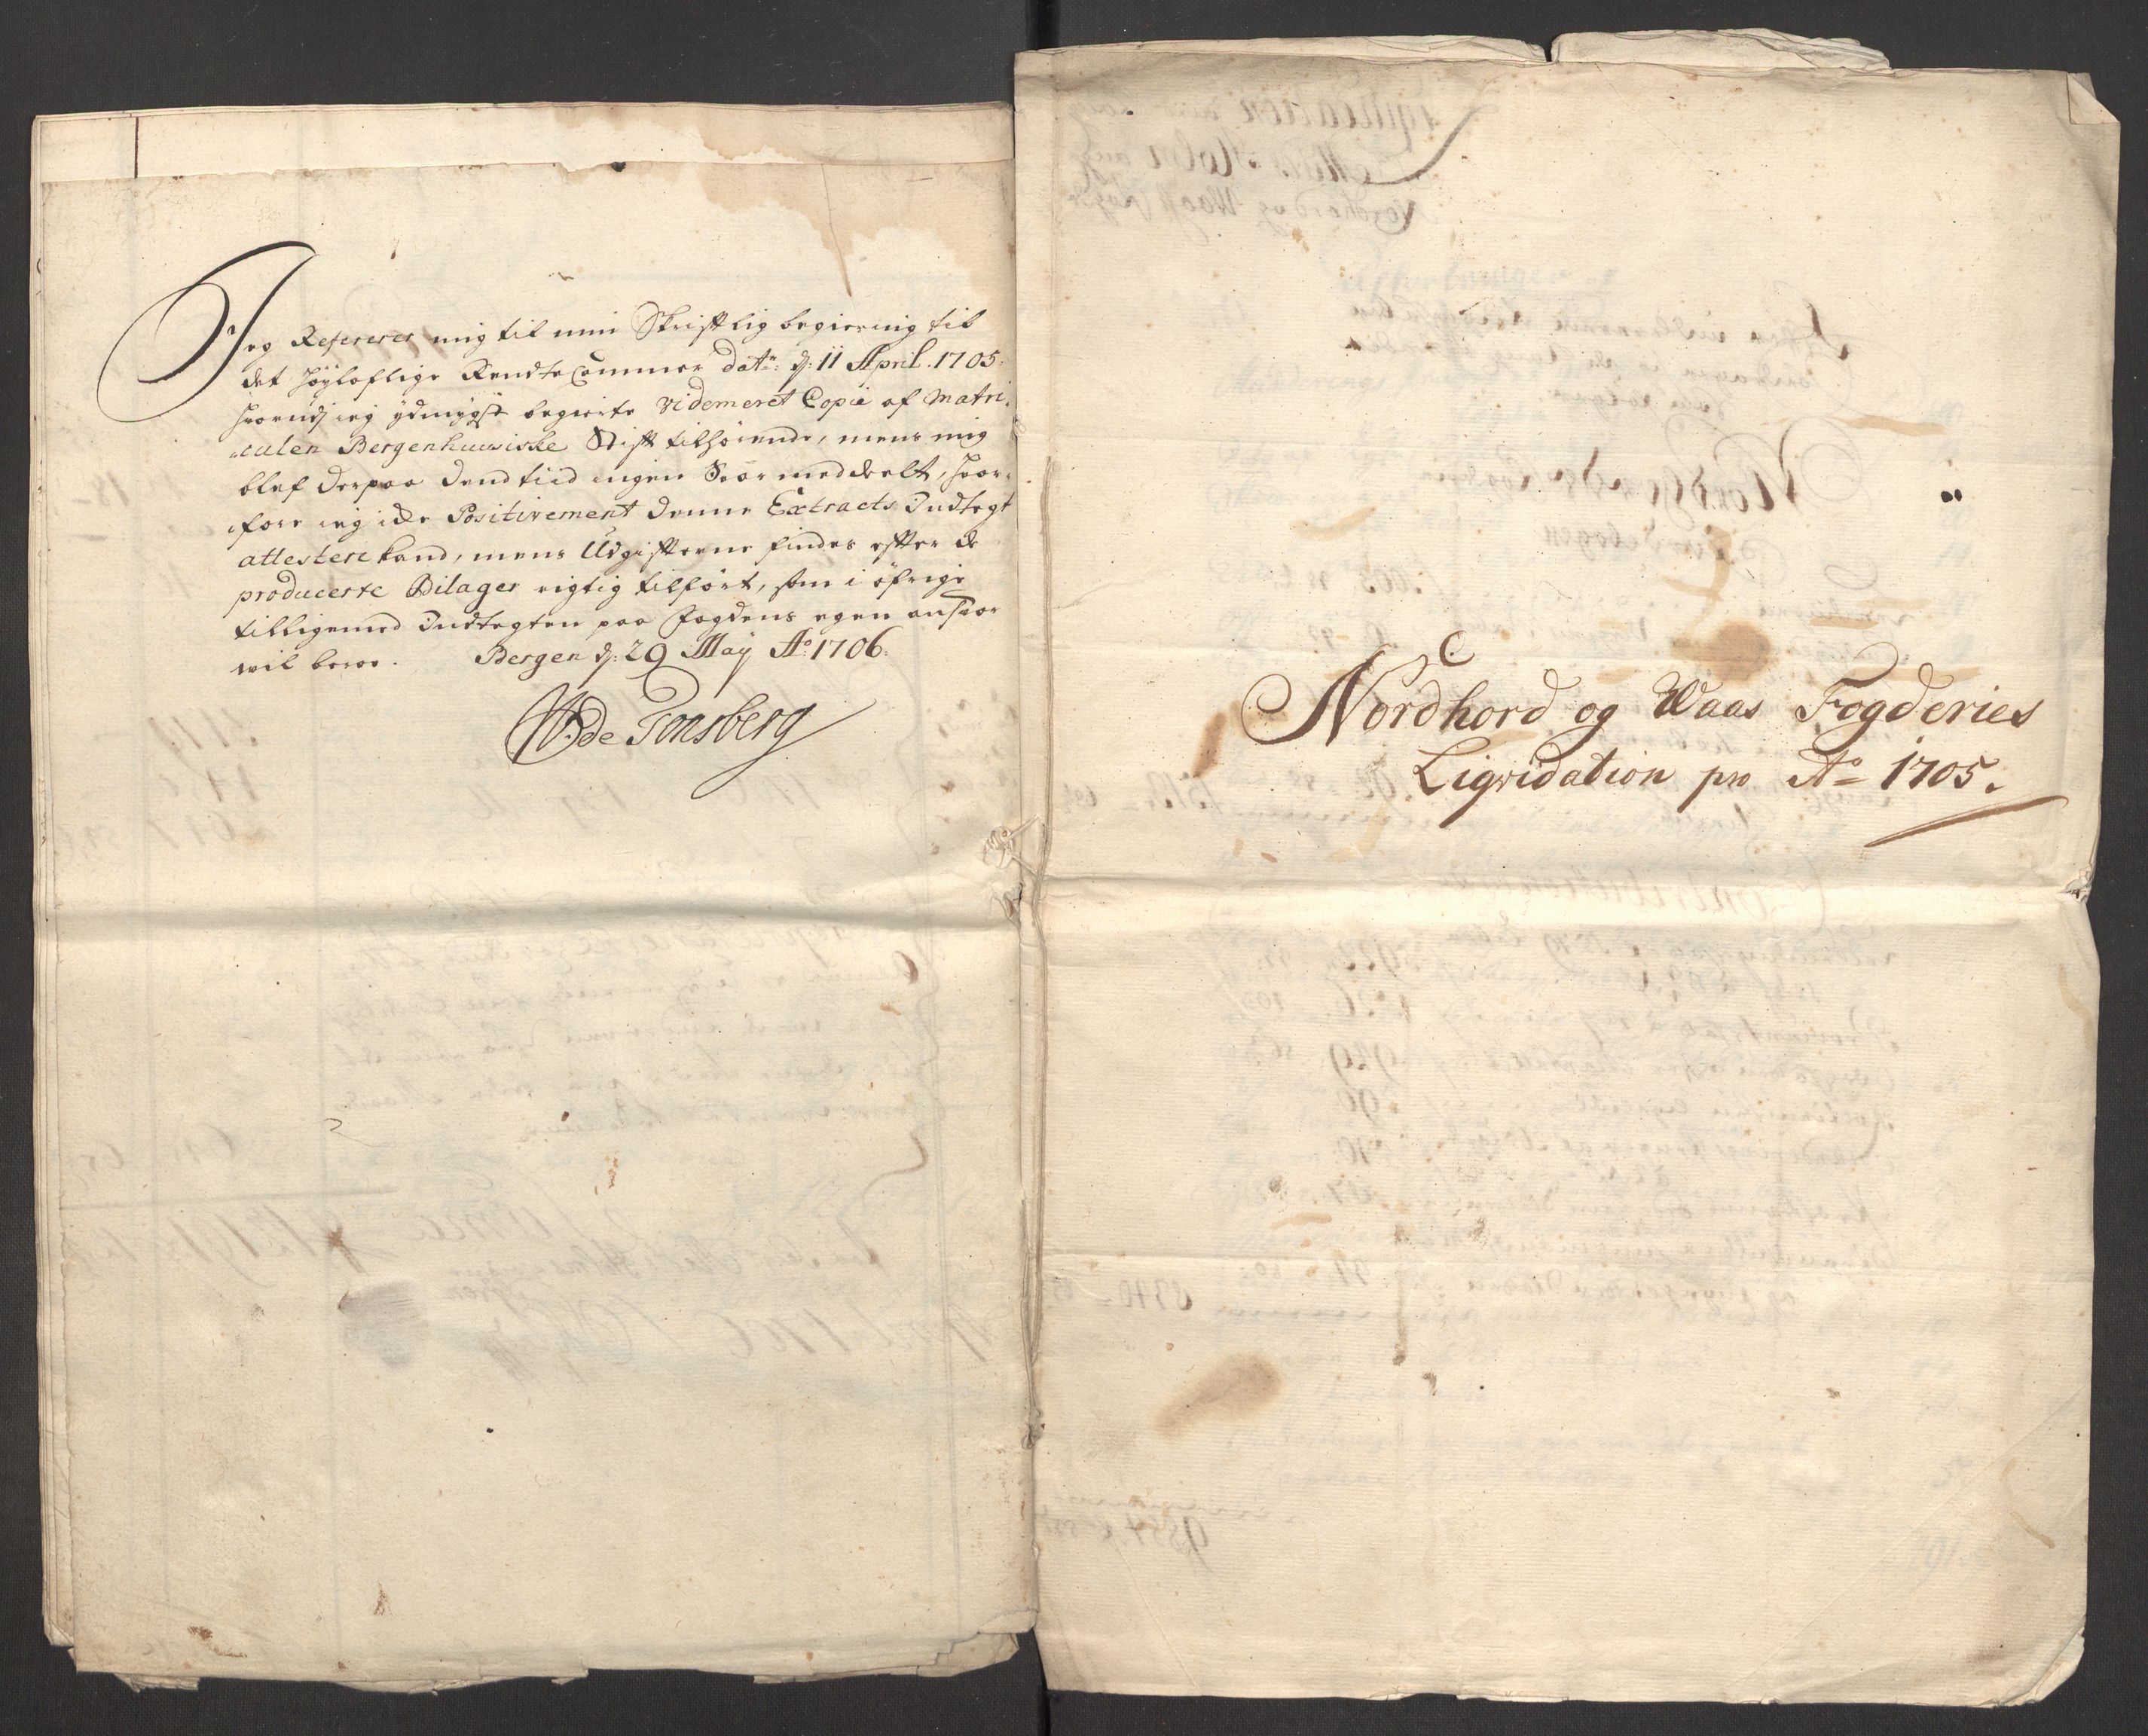 Jeg Refererer mig til min Skriftlig begiering til
det höyloflige Rendte Cammer dat: d: 11 April. 1705.
hvorudj ieg ydmygst begierte Videmeret Copie af Matri-
culen Bergenhuusiske Stift tilhörende, mens mig
blef derpaa dend tiid ingen Svar meddeelt, hvor-
fore ieg icke Positivement denne Extracts Indtegt
attestere kand, mens Udgifterne findes efter de
producerte Bilager rigtig tilfört, som i öfrige
tilligemed Indtegten paa Fogdens egen ansvar
vil beroe. Bergen d: 29 May Ao 1706.
WdeTonsberg
C.
Nordhord og Waas Fogderies
Liqvidation pro Ao 1705.